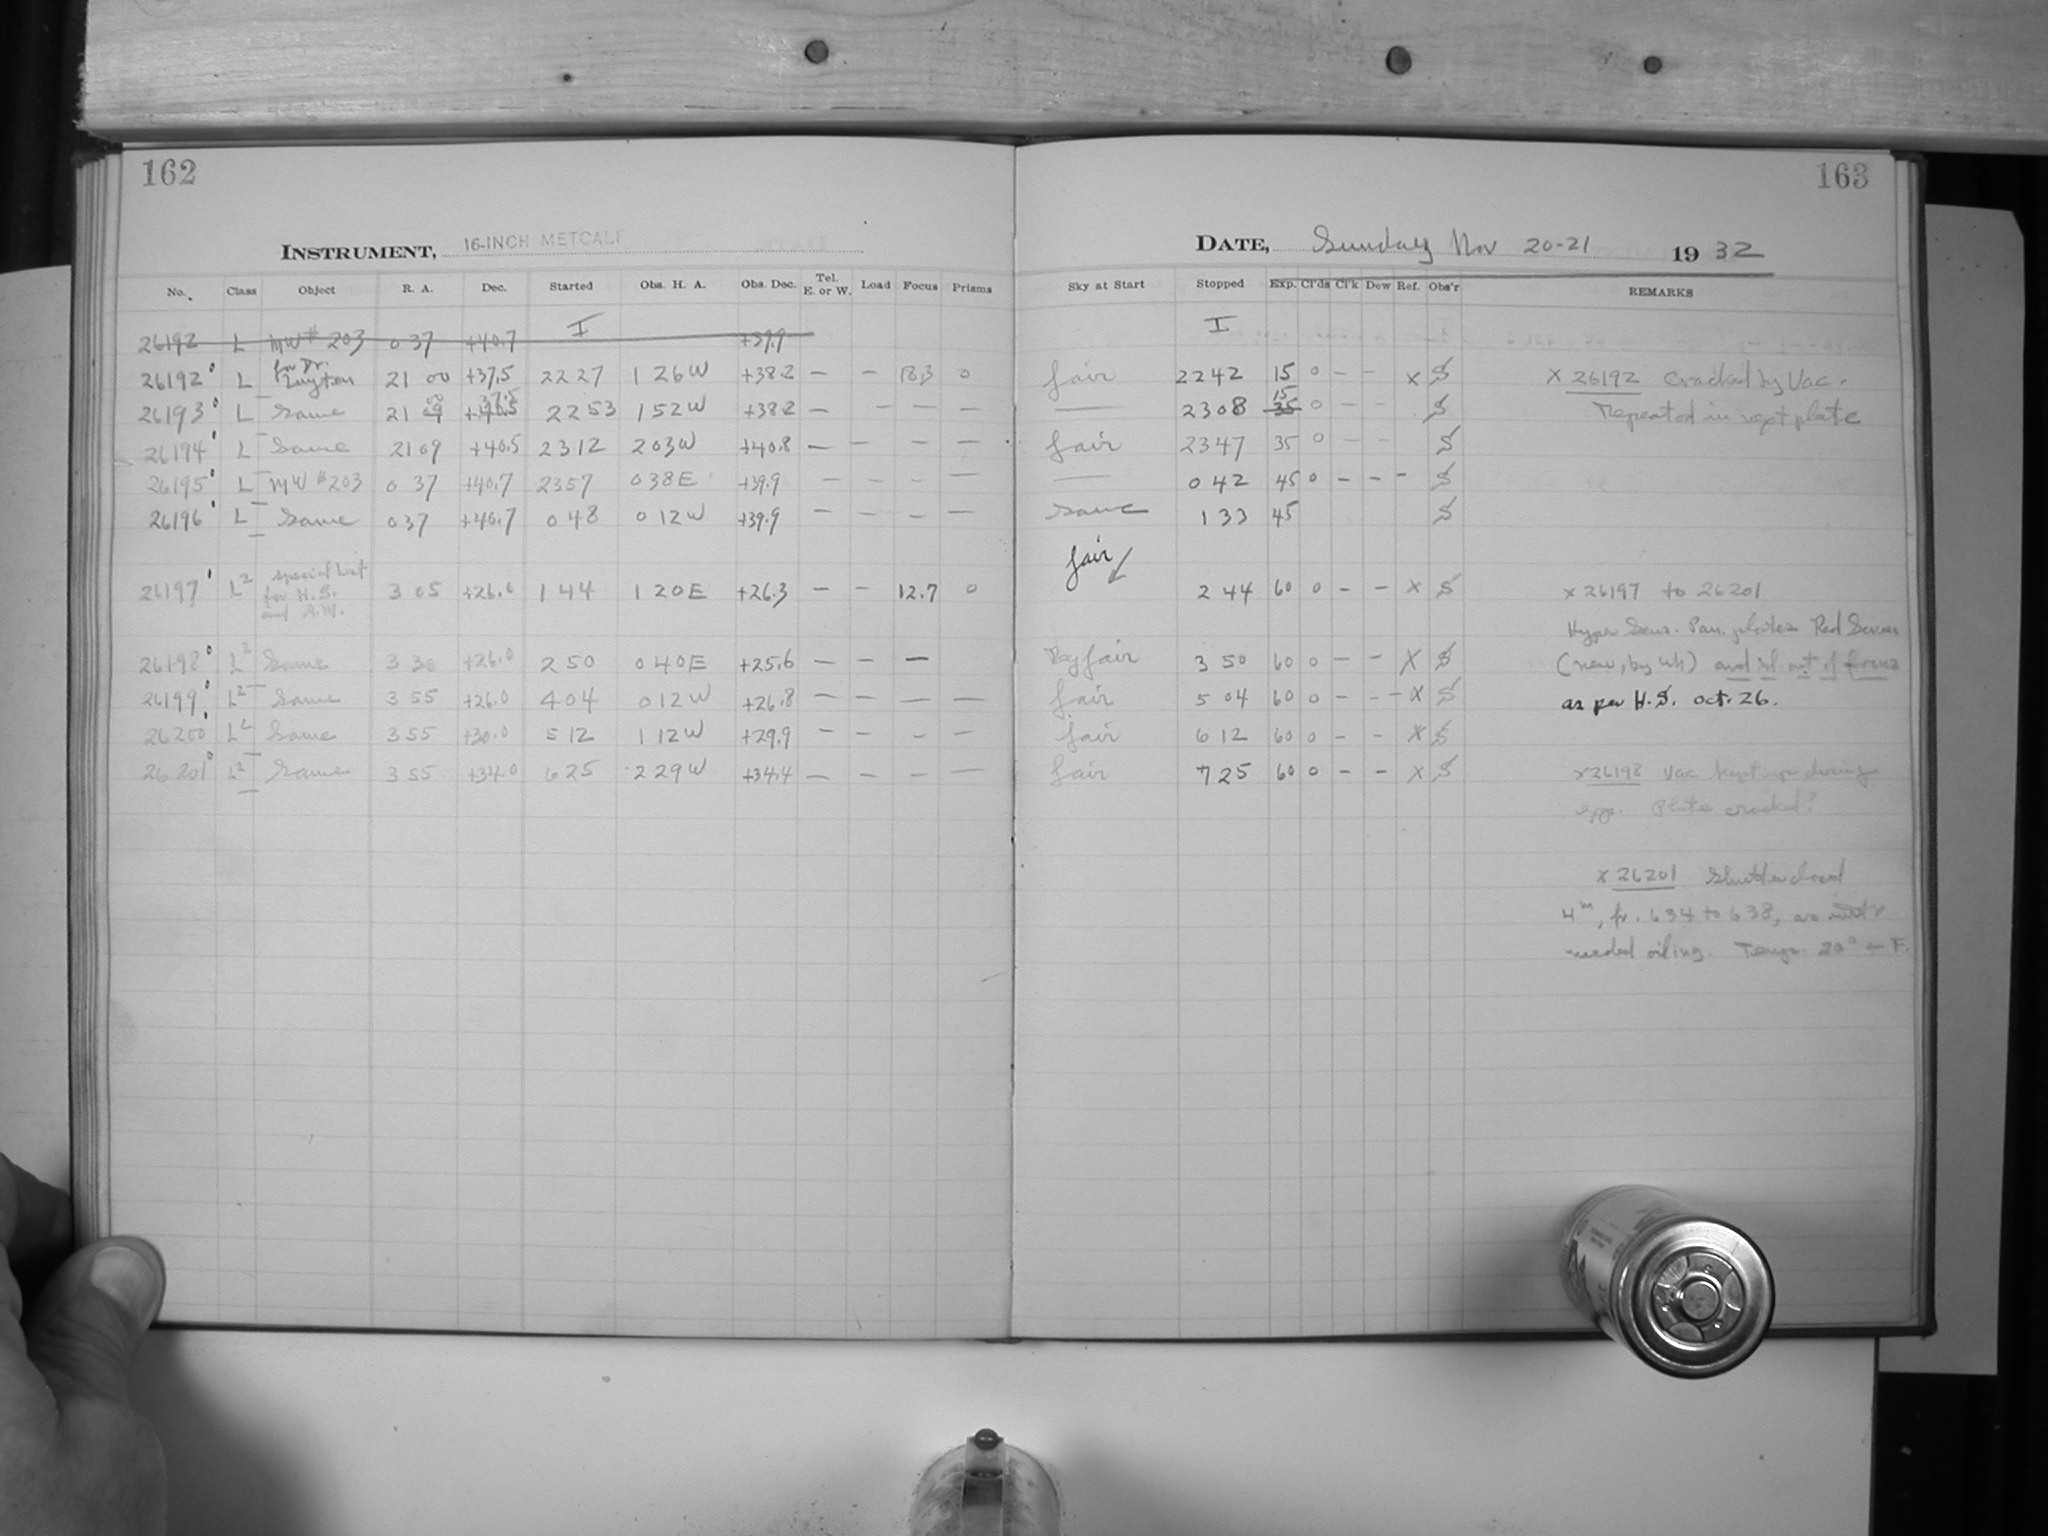 162
163
INSTRUMENT, 16-INCH METCALF
DATE, Sunday Nov 20-21 1932
No. Class Object R. A. Dec. Started Obs. H. A. Obs. Dec. Tel. E. or W. Load Focus Prisms
Sky at Start Stopped Exp. Cl'ds Cl'k Dew Ref. Obs'r REMARKS
I I
26192 L MW # 203 0 37 +40.7 +39.9
26192 L for Dr. Luyten 21 00 +37.5 22 27 1 26 W +38.2 — — 18.3 0 fair 22 42 15 0 - - x S x 26192 Cracked by Vac.
26193 L Same 21 00 +37.5 22 53 1 52 W +38.2 — - — — — 23 08 15 35 0 - - S Repeated in next plate
26194 L Same 21 09 +40.5 23 12 2 03 W +40.8 — — — — fair 23 47 35 0 - - S
26195 L MW #203 0 37 +40.7 23 57 0 38 E +39.9 — — — — — 0 42 45 0 - - - S
26196 L Same 0 37 +40.7 0 48 0 12 W +39.9 — — — — Same 1 33 45 S
fair
26197 L2 Special List for H.S. and A.W. 3 05 +26.0 1 44 1 20 E +26.3 — — 12.7 0 2 44 60 0 - - x S x 26197 to 26201
Hyper Sens. Pan. plates Red
26198 L2 Same 3 30 +26.0 2 50 0 40 E +25.6 — — — fair 3 50 60 0 - - x S (new, by Wh) and sl. out of focus
26199 L2 Same 3 55 +26.0 4 04 0 12 W +26.8 — — — — fair 5 04 60 0 - - - x S as per H.S. Oct. 26.
26200 L2 Same 3 55 +30.0 5 12 1 12 W +29.9 — — — — fair 6 12 60 0 - - x S
26201 L2 Same 3 55 +34.0 6 25 2 29 W +34.4 — — — — fair 7 25 60 0 - - x S x 26198 Vac kept up during
exp. Plate cracked?
x 26201 Shutter closed
4m, fr. 6 34 to 6 38, as
needed oiling. Temp. 20° F.